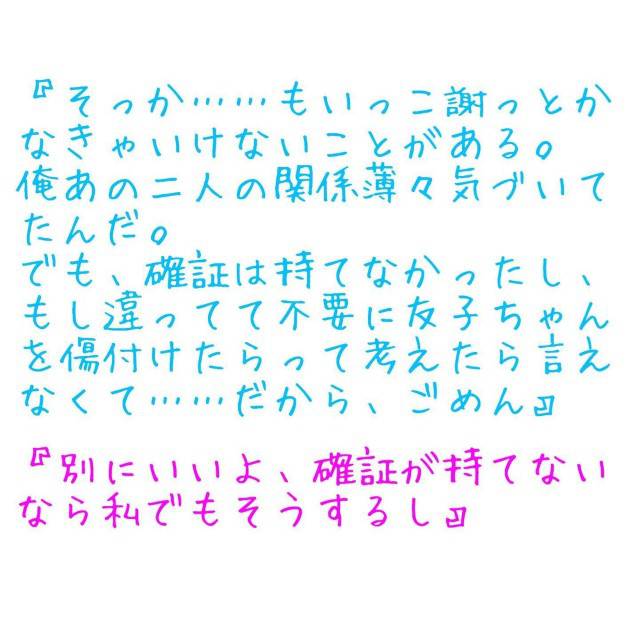 『そっか……もいっこ謝っとか
なきゃいけないことがある。
俺あの二人の関係薄々気づいて
たんだ。
でも、確証は持てなかったし、
もし違ってて不要に友子ちゃん
を傷付けたらって考えたら言え
なくて……だから、ごめん』
『別にいいよ、確証が持てない
なら私でもそうするし』